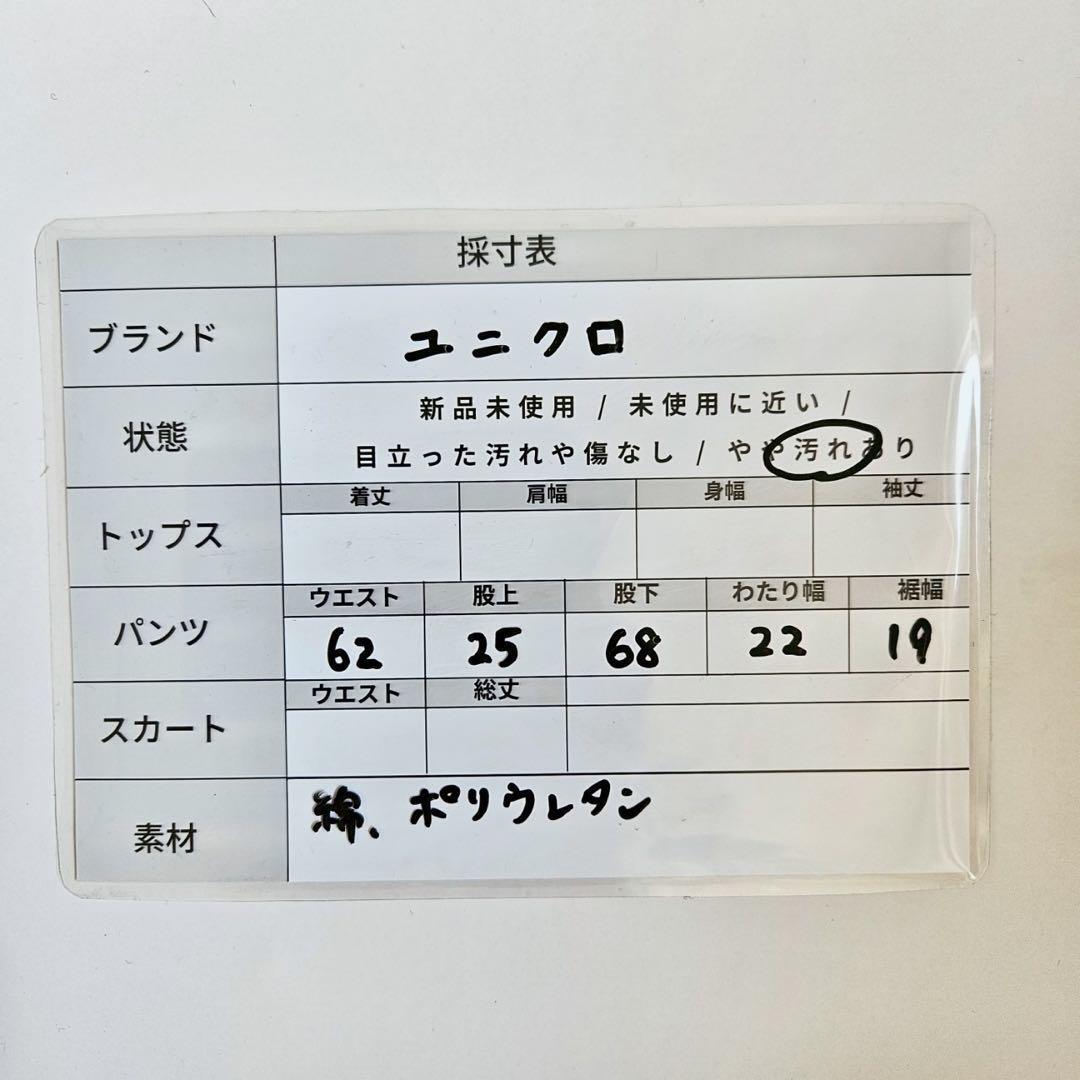 採寸表
ブランド ユニクロ
状態 新品未使用 / 未使用に近い /
目立った汚れや傷なし / やや汚れあり
トップス 着丈 肩幅 身幅 袖丈
パンツ ウエスト 股上 股下 わたり幅 裾幅
62 25 68 22 19
スカート ウエスト 総丈
素材 綿、ポリウレタン